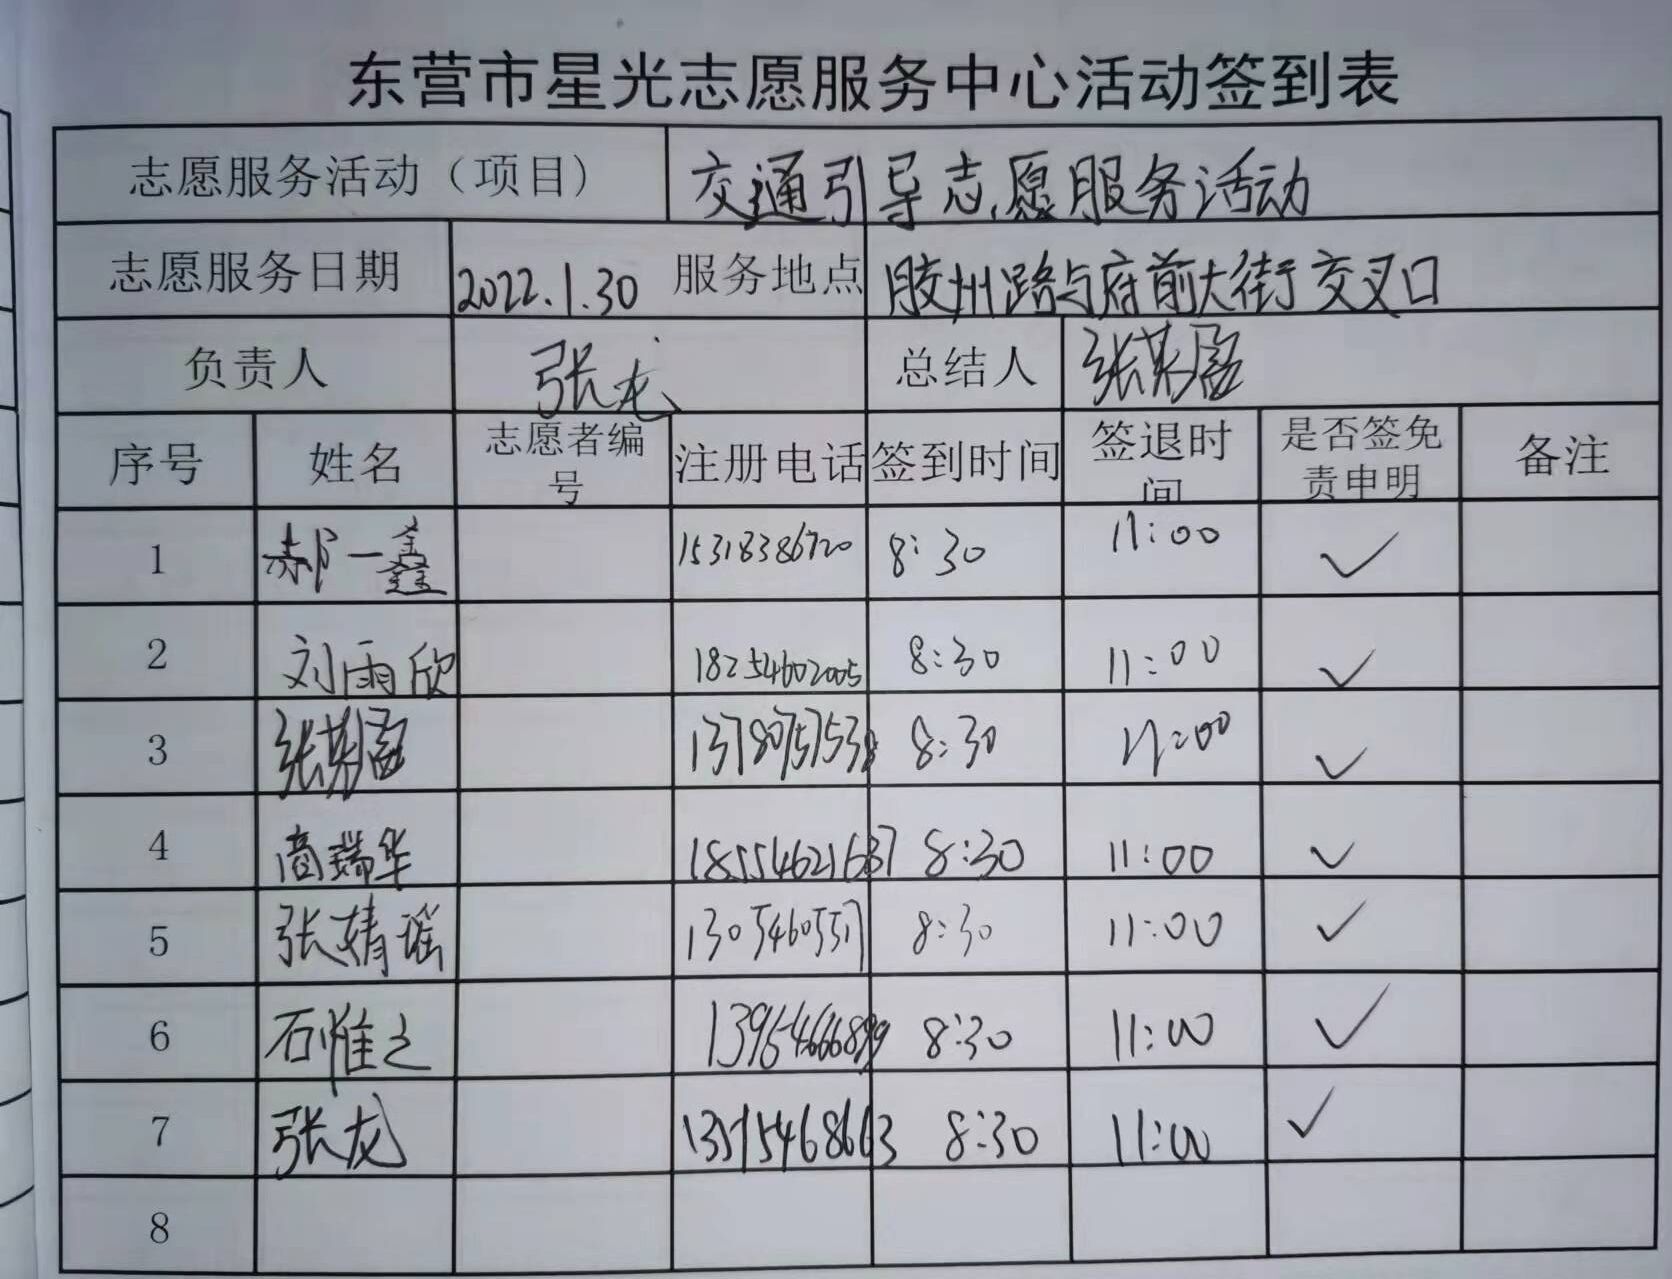 东营市星光志愿服务中心活动签到表
志愿服务活动（项目） 交通引导志愿服务活动
志愿服务日期 2022.1.30 服务地点 胶州路与府前大街交叉口
负责人 张龙 总结人
序号 姓名 志愿者编号 注册电话 签到时间 签退时间 是否签免责申明 备注
1 郝一鑫 15318386720 8:30 11:00 ✓
2 刘雨欣 18254602005 8:30 11:00 ✓
3 8:30 11:00 ✓
4 高瑞华 18554621637 8:30 11:00 ✓
5 张婧谣 8:30 11:00 ✓
6 石惟之 8:30 11:00 ✓
7 张龙 8:30 11:00 ✓
8